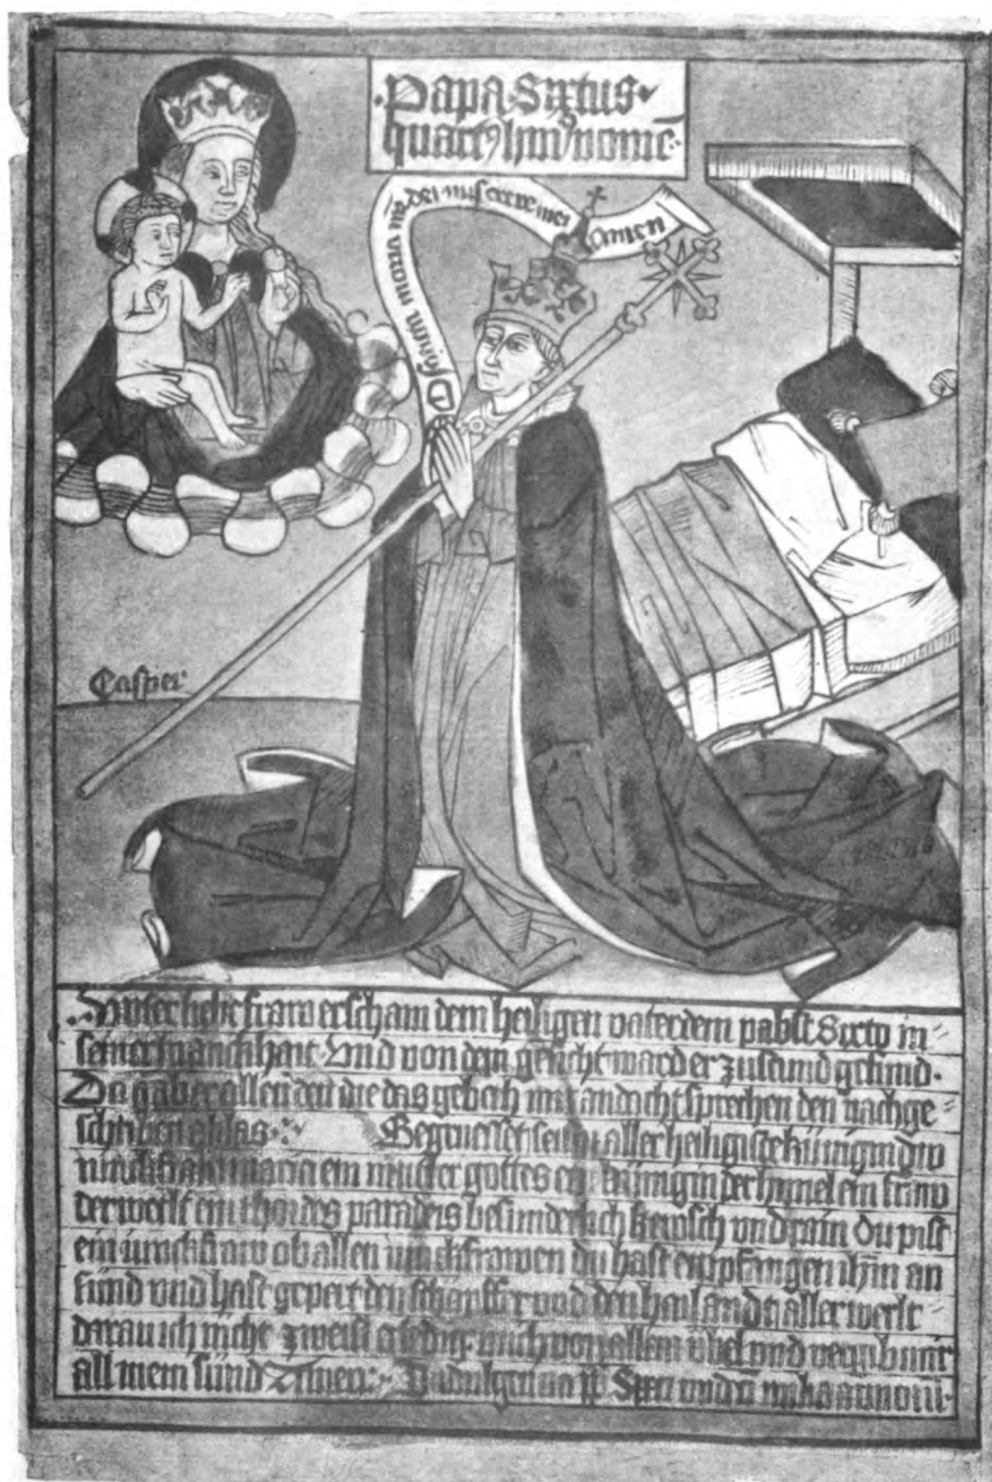 Papa Sixtus
quart9 hui9 nomīs
O sanctissima maria mr̄ dei miserere mei amen
Casper
Unser liebe fraw erscham dem heiligen vater dem pabst Sixto in
seiner kranckhait Und von dem gesicht ward er zustund gesund
Da gab er allen den die das gebeth mit andacht sprechen den nachge
schriben ablas Begruesset seistu aller heiligiste künigin dw
iunckfraw maria ein mueter gottes ein künigin der himel ein fraw
der werlt ein thor des paradeis besunderlich kewsch und rain Du pist
ein iunckfraw ob allen iunckfrawen du hast enpfangen ihm an
sünd und hast gepert den schopffer und den hailandt aller werlt
daran ich nicht zweifl erledig mich von allem übel und
all mein sünd Amen Indulgentia Sixti